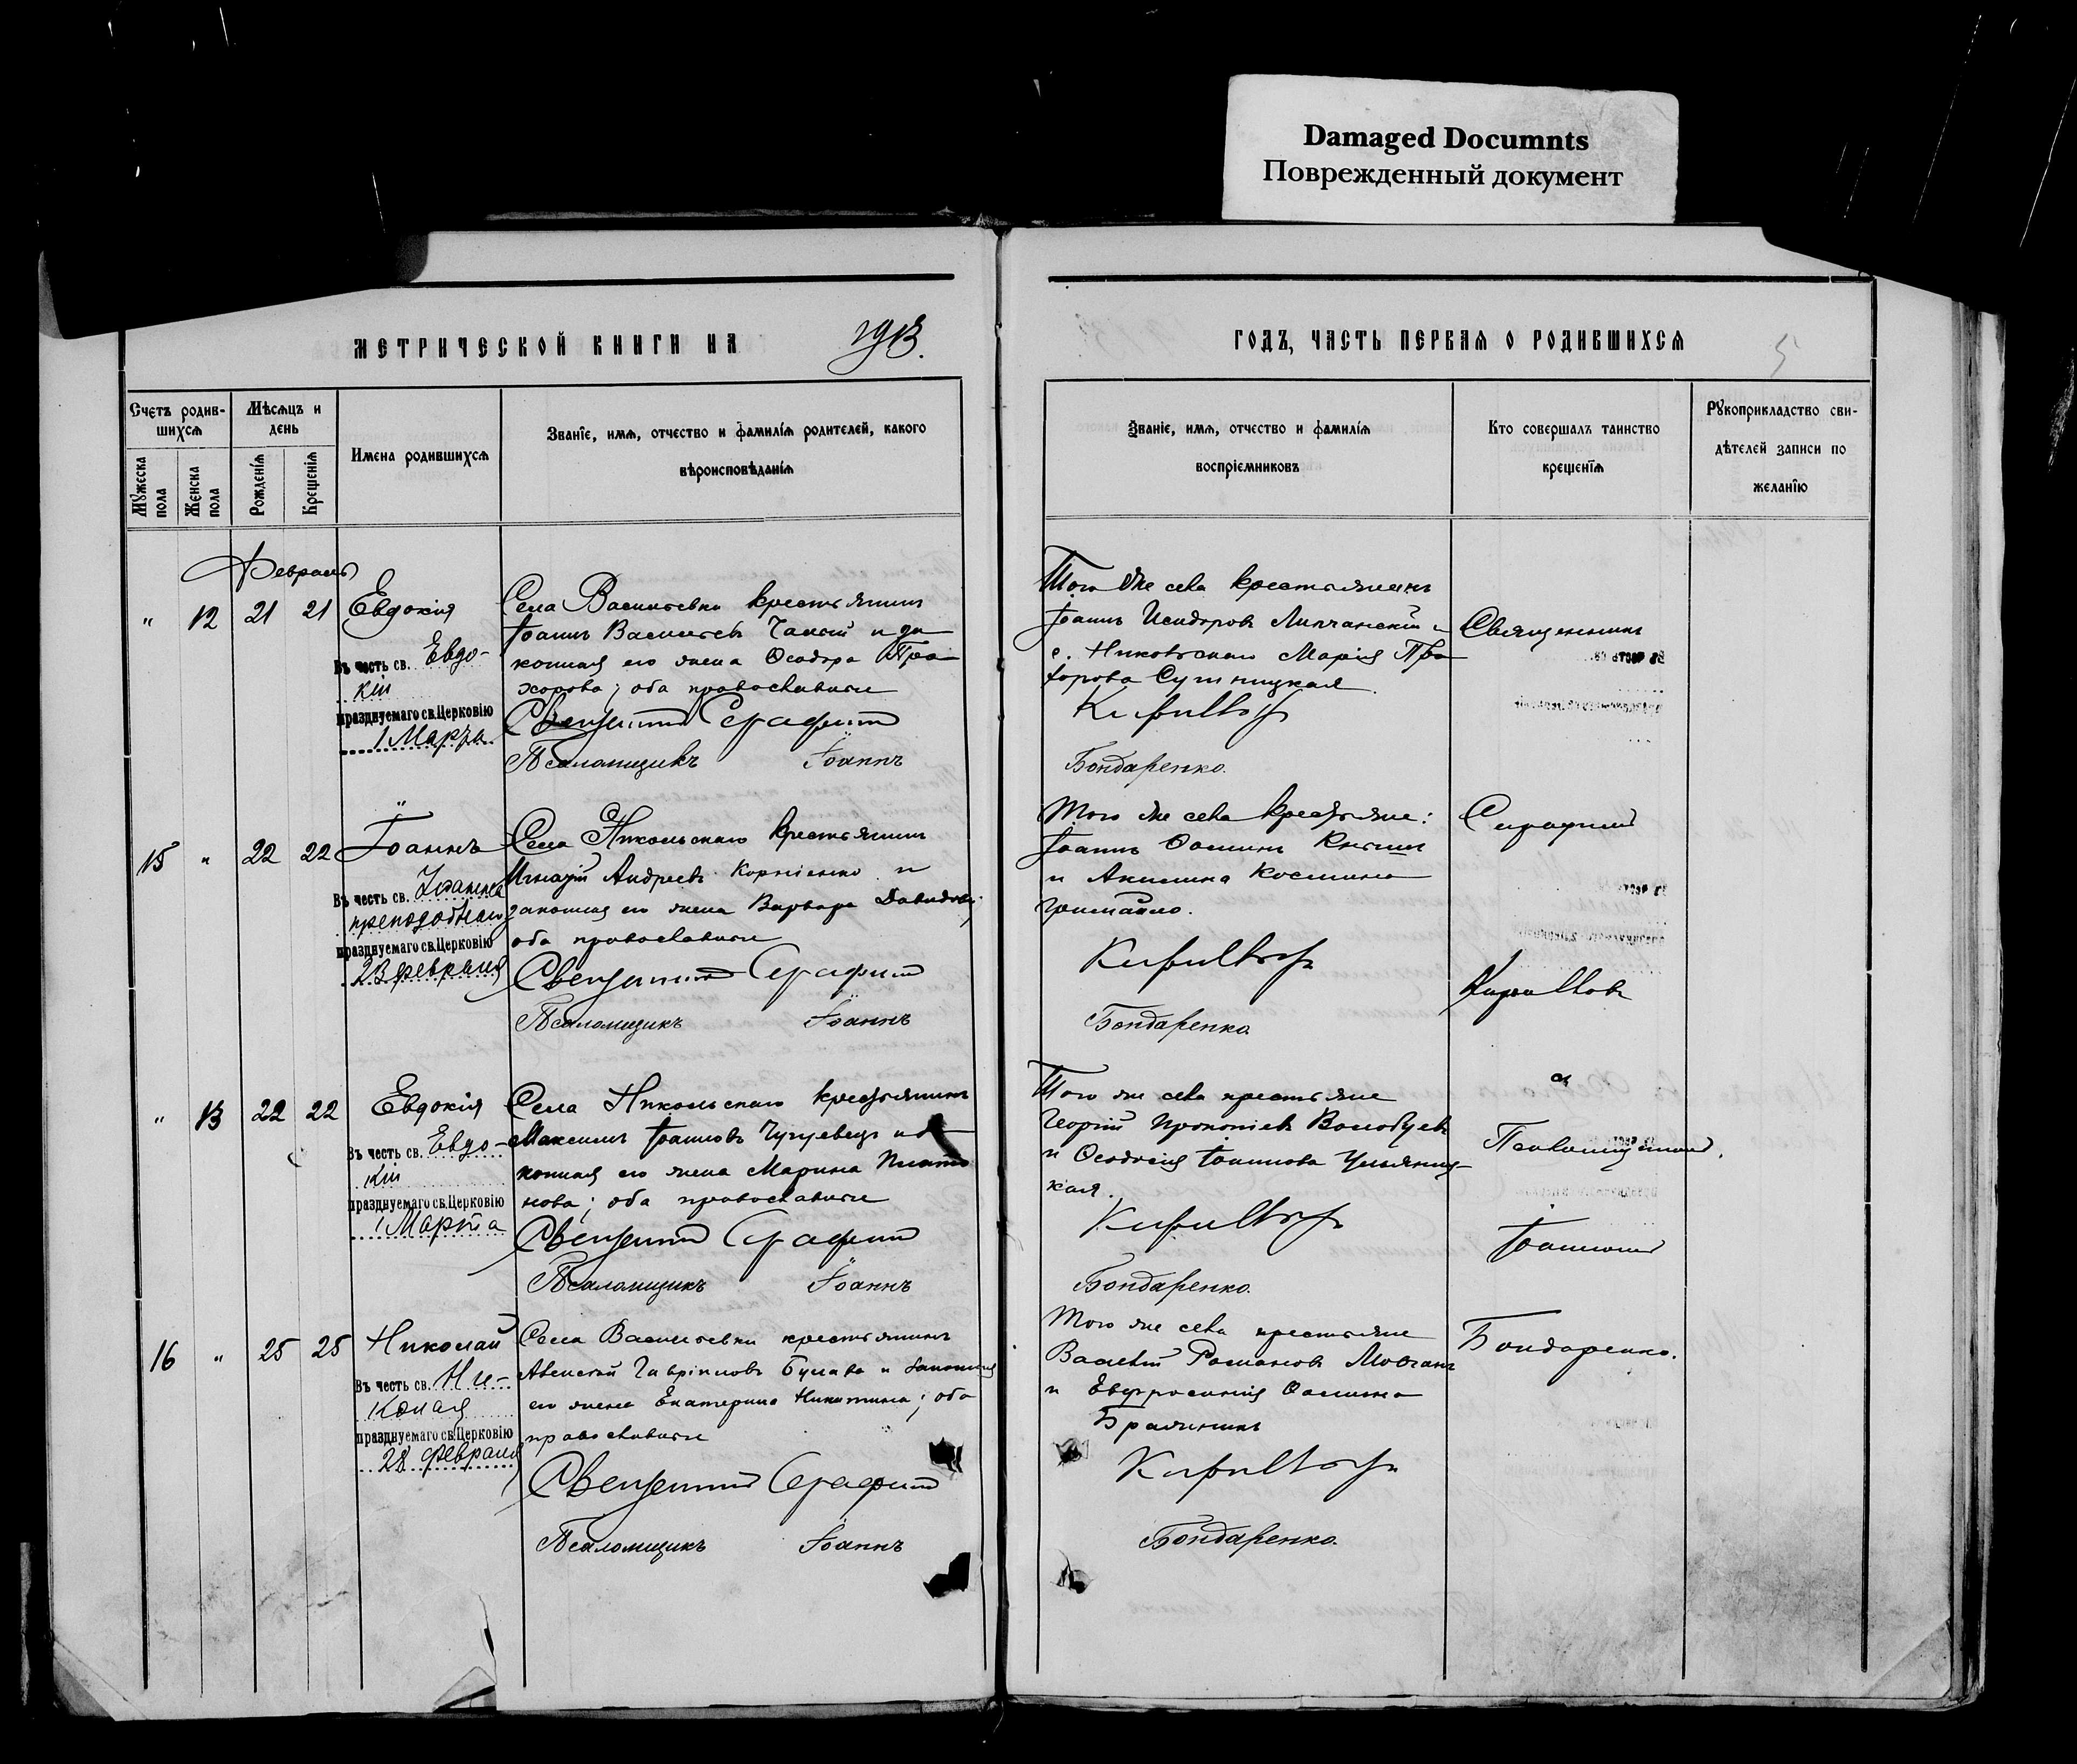 Damaged Documnts
Поврежденный документ
МЕТРИЧЕСКОЙ КНИГИ НА 1913.
ГОДЪ, ЧАСТЬ ПЕРВАЯ О РОДИВШИХСЯ
5
Счетъ родив-
шихся
Мѣсяцъ и
день
Мужеска пола
Женска пола
Рожденія
Крещенія
Имена родившихся
Званіе, имя, отчество и фамилія родителей, какого
вѣроисповѣданія
Званіе, имя, отчество и фамилія
воспріемниковъ
Кто совершалъ таинство
крещенія
Рукоприкладство сви-
дѣтелей записи по
желанію
Февраль
" 12 21 21 Евдокія
Въ честь св. Евдо-
кіи
празднуемаго св. Церковію
1 Марта
Села Васильевки крестьянинъ
Іоаннъ Васильевъ и за
конная его жена Ѳеодора Про
хорова; оба православные
Священникъ Серафимъ
Псаломщикъ Іоаннъ
Того же села крестьянинъ
Іоаннъ Исидоровъ Липчанскій и
с. Никольскаго Марія Про
хорова Сутницкая.
Кирилловъ
Бондаренко.
Священникъ
15 " 22 22 Іоаннъ
Въ честь св. Іоанна
преподобнаго
празднуемаго св. Церковію
23 февраля
Села Никольскаго крестьянинъ
Игнатій Андреевъ Корніенко и
законная его жена Варвара Давидова;
оба православные
Священникъ Серафимъ
Псаломщикъ Іоаннъ
Того же села крестьяне:
Іоаннъ Ѳоминъ
и Акилина Космина
Кирилловъ
Бондаренко
Серафимъ
Кирилловъ
" 13 22 22 Евдокія
Въ честь св. Евдо-
кіи
празднуемаго св. Церковію
1 Марта
Села Никольскаго крестьянинъ
Максимъ Іоанновъ Чугуевецъ и за
конная его жена Марина Плато
нова; оба православные
Священникъ Серафимъ
Псаломщикъ Іоаннъ
Того же села крестьяне
Георгій Прокопіевъ Волобуевъ
и Ѳеодосія Іоаннова
кая.
Кирилловъ
Бондаренко.
съ
Псаломщикомъ
Іоанномъ
16 " 25 25 Николай
Въ честь св. Ни-
колая
празднуемаго св. Церковію
28 февраля
Села Васильевки крестьянинъ
Алексій Гавріиловъ Булава и законная
его жена Екатерина Никитина; оба
православные
Священникъ Серафимъ
Псаломщикъ Іоаннъ
Того же села крестьяне
Василій Романовъ Мовчанъ
и Евфросинія Ѳомина
Кирилловъ
Бондаренко.
Бондаренко.